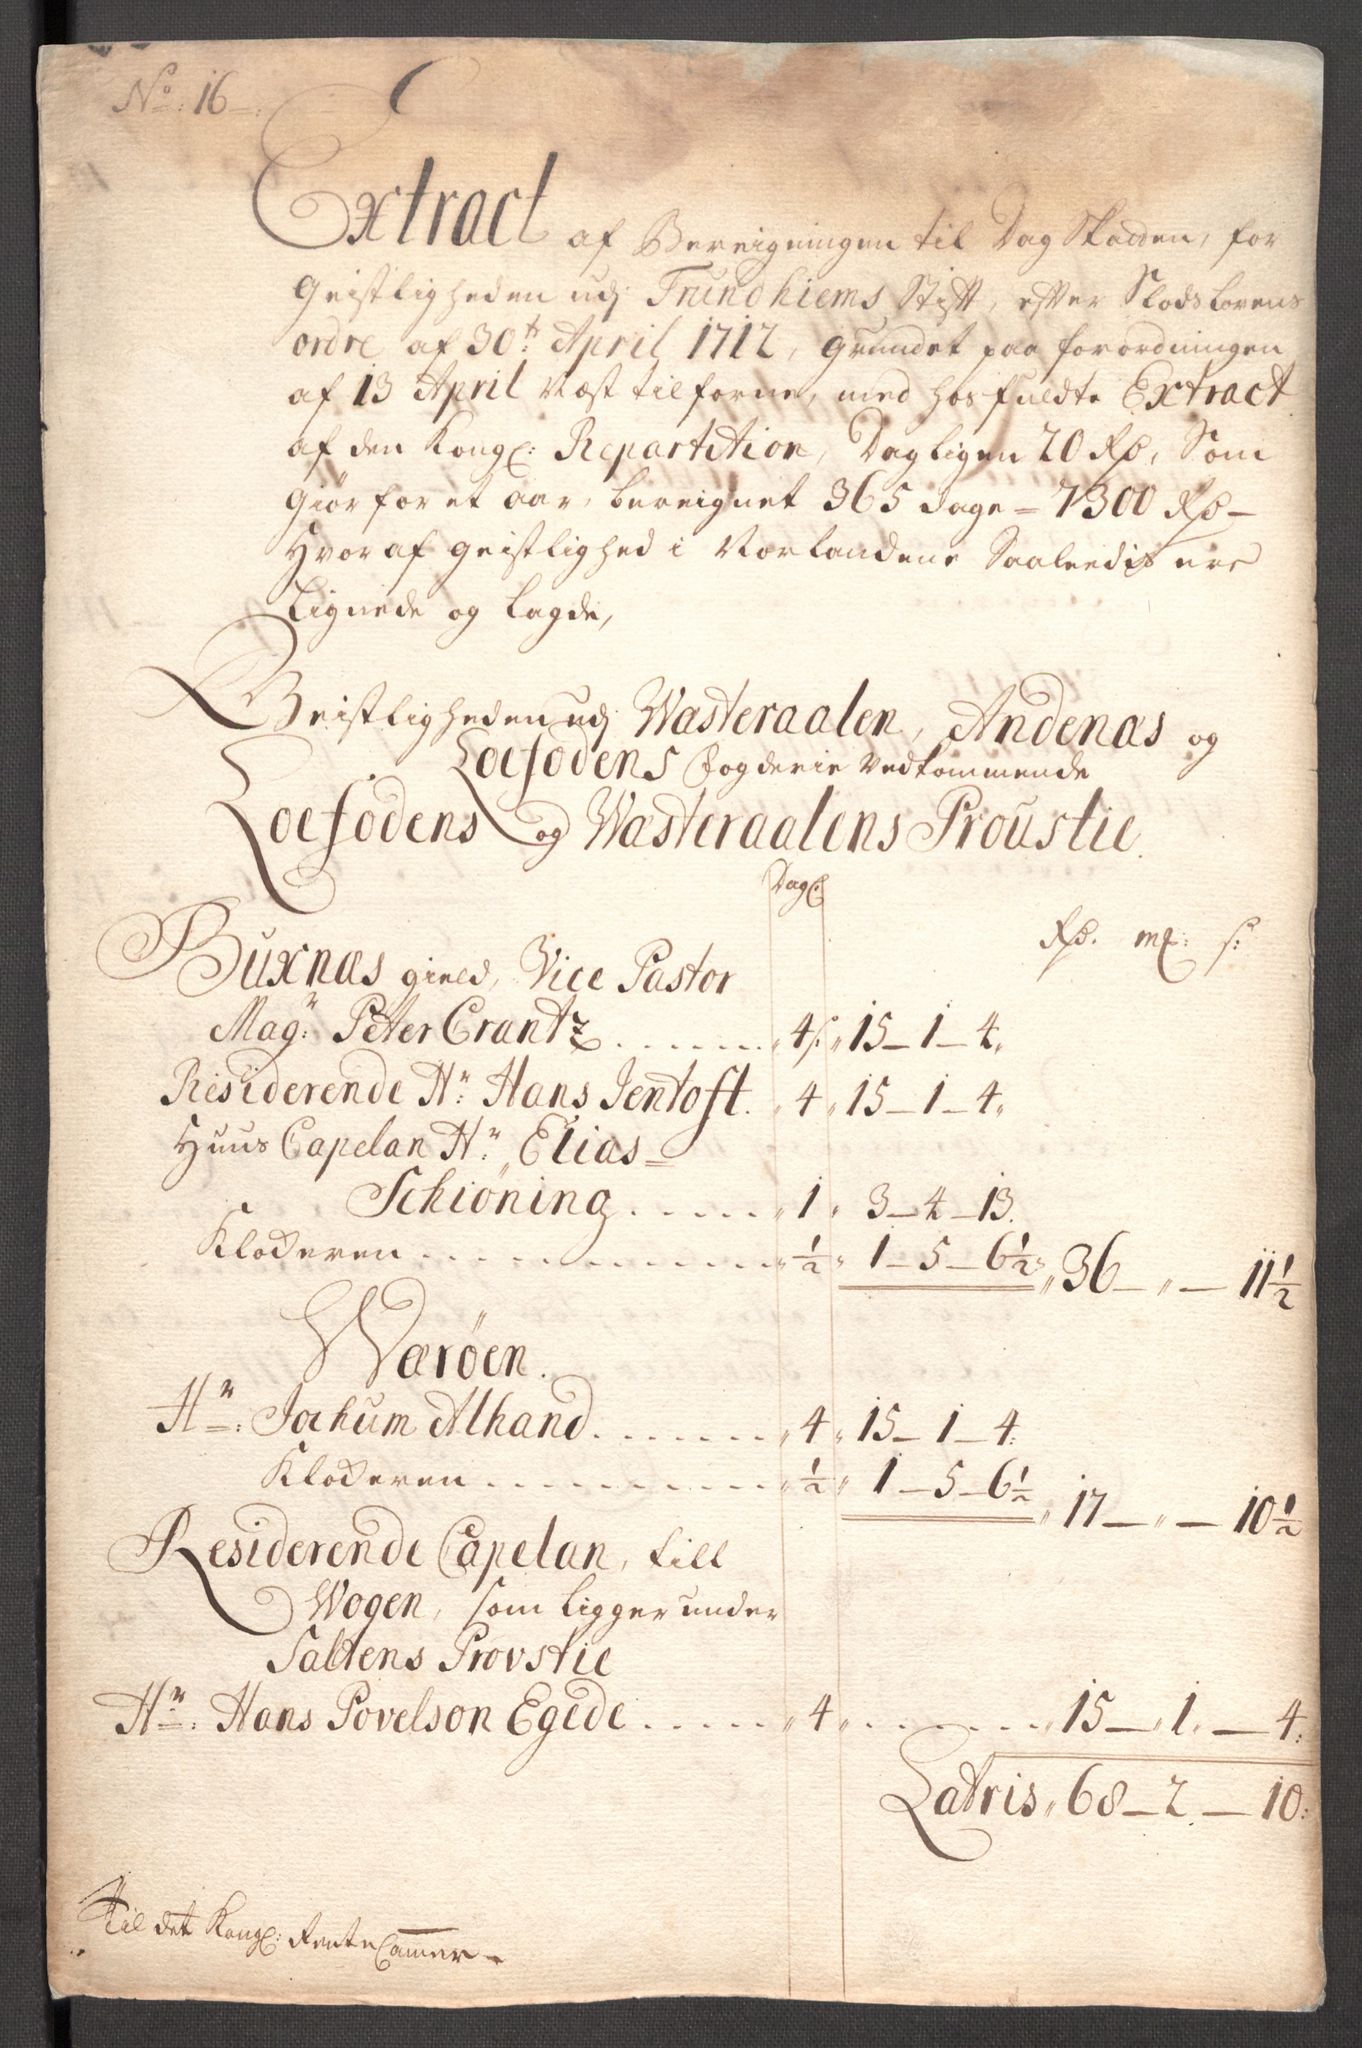 No: 16
Extract af Bereigningen til Dag Skatten, for
Geistligheden udj Trundhiems Stift, efter Slodslovens
ordre af 30te April 1712, grundet paa forordningen
af 13 April næst tilforne, med hosfuldte Extract
af den Kongl: Repartition, Dagligen 20 Rd, Som
Giør for et aar, bereignet 365 dage = 7300 Rd
Hvoraf geistlighed i Norlandene Saaleedis ere
Lignede og lagde,
Geistligheden udj Wasteraalen, Andenæs og
Loefodens fogderie vedkommende
Loefodens og Wasteraalens Proustie.
Dagl:
Rd. mk: s:
Buxnæs gield, Vice Pastor
Magr: Peter Crantz ...... 4s: 15 – 1 – 4
Residerende Hr: Hans Jentoft. 4 15 – 1 – 4
Huus Capelan Hr: Elias
Schiöning ..... 1 3 – 4 – 13.
Klockeren ........... ½ 1 – 5 – 6½ 36 – „ – 11½
Wæröen.
Hr: Jochum Alhand ....... 4 15 – 1 – 4:
Klockeren .......... ½ 1 – 5 – 6½ 17 – „ – 10½
Residerende Capelan, till
Wogen, som ligger under
Saltens Provstie
Hr: Hans Povelson Egede ...... 4 ....... 15 – 1 – 4:
Latris 68 – 2 – 10:
Til det Kongl: Rente Cammer